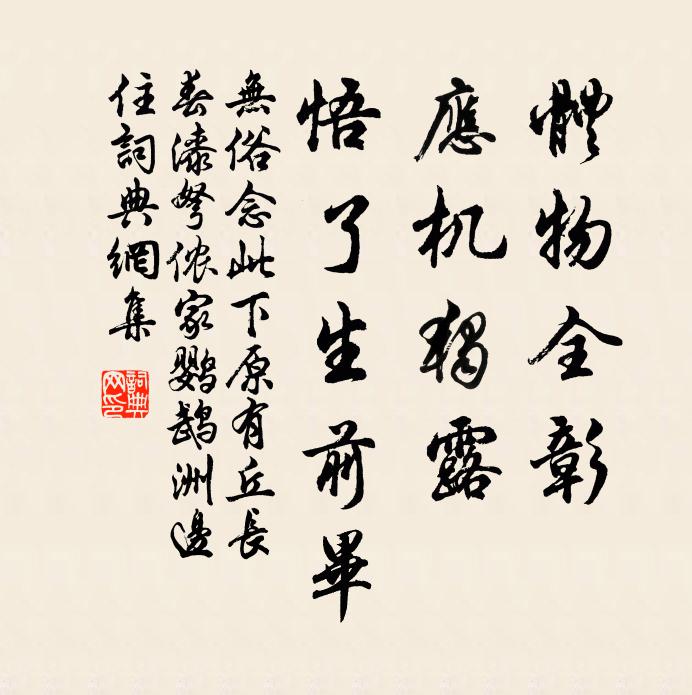 體物全彰
應机獨露
悟了生前畢
無俗念此下原有丘長
春漆弩侬家鸚鵡洲邊
住詞典網集
詞典
网印